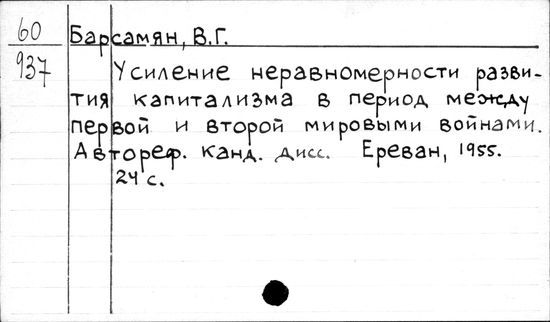 60 Барсамян, В.Г.
937 Усиление неравномерности разви-
тия капитализма в период между
первой и второй мировыми войнами.
Автореф. канд. дисс. Ереван, 1955.
24 с.